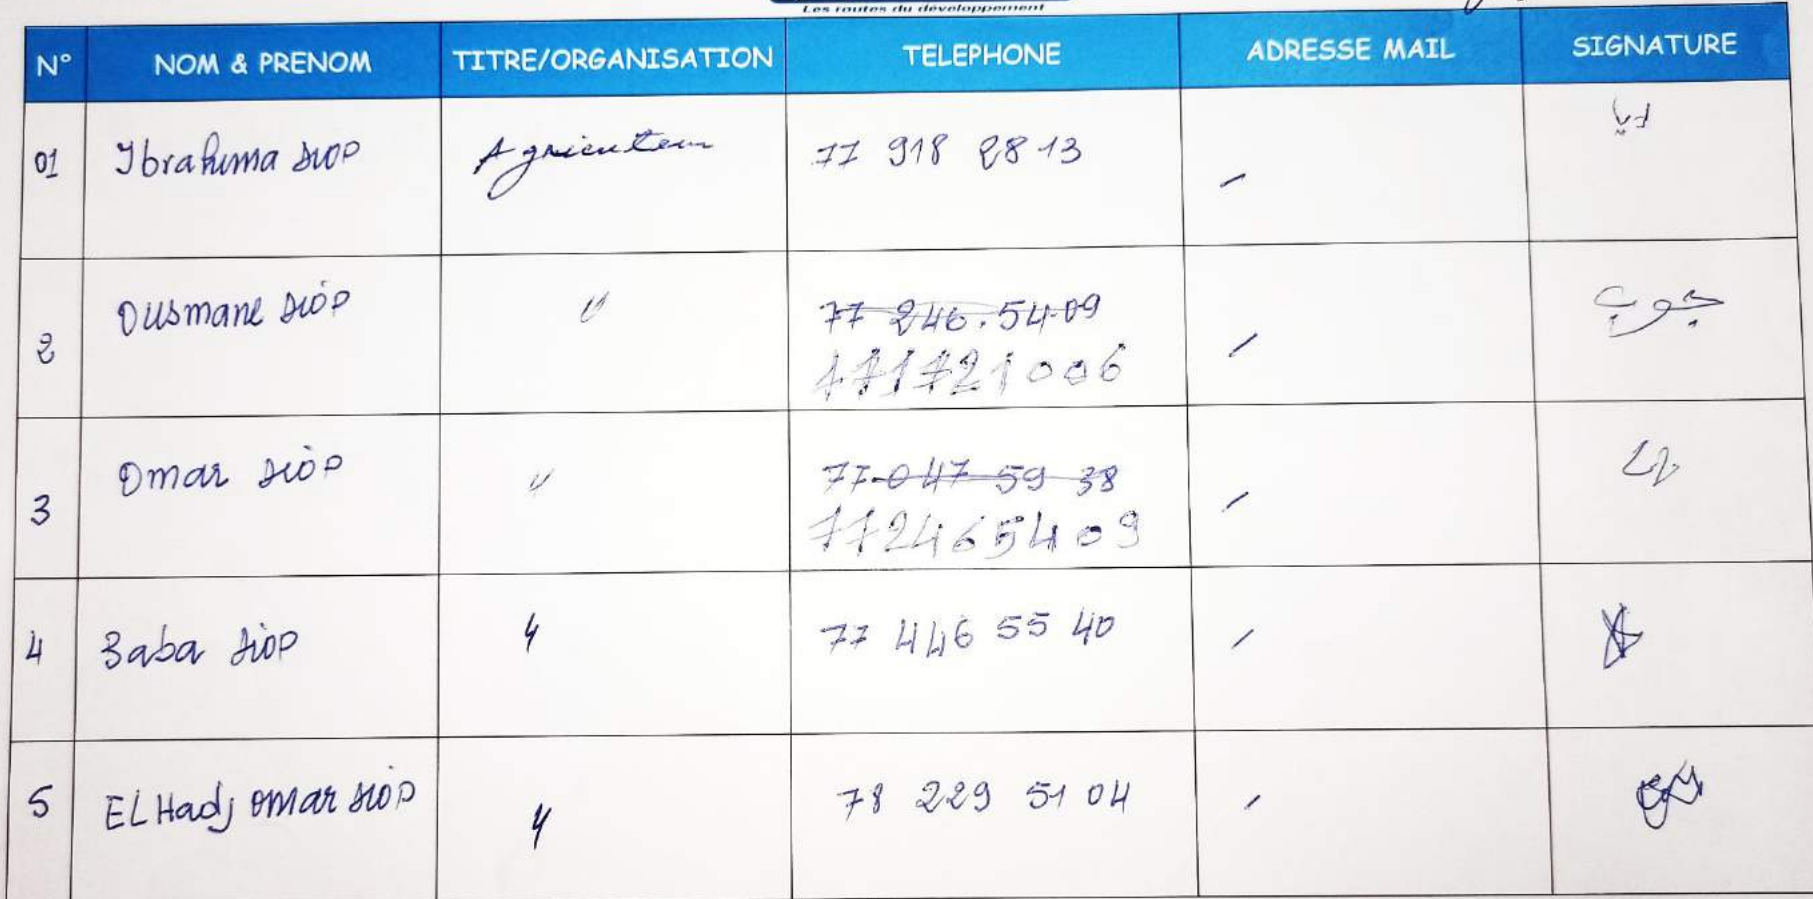 Les routes du développement
N° NOM & PRENOM TITRE/ORGANISATION TELEPHONE ADRESSE MAIL SIGNATURE
01 Ibrahima Diop Agriculteur 77 918 28 13 /
2 Ousmane Diop " 77 246.54.09 / جوب
771721006
3 Omar Diop " 77 047 59 38 /
772465409
4 Baba Diop " 77 446 55 40 /
5 EL Hadj Omar Diop " 78 229 51 04 /